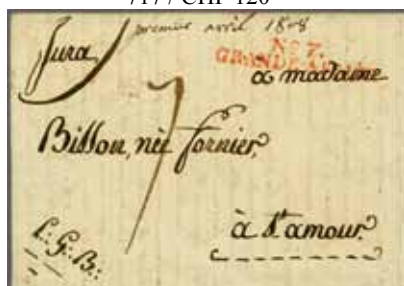 7177 CHF 120
premier avril 1808
Jura
No 7.
GRANDE
a madame
Billon, née fornier,
7
à St amour.
L: G: B: